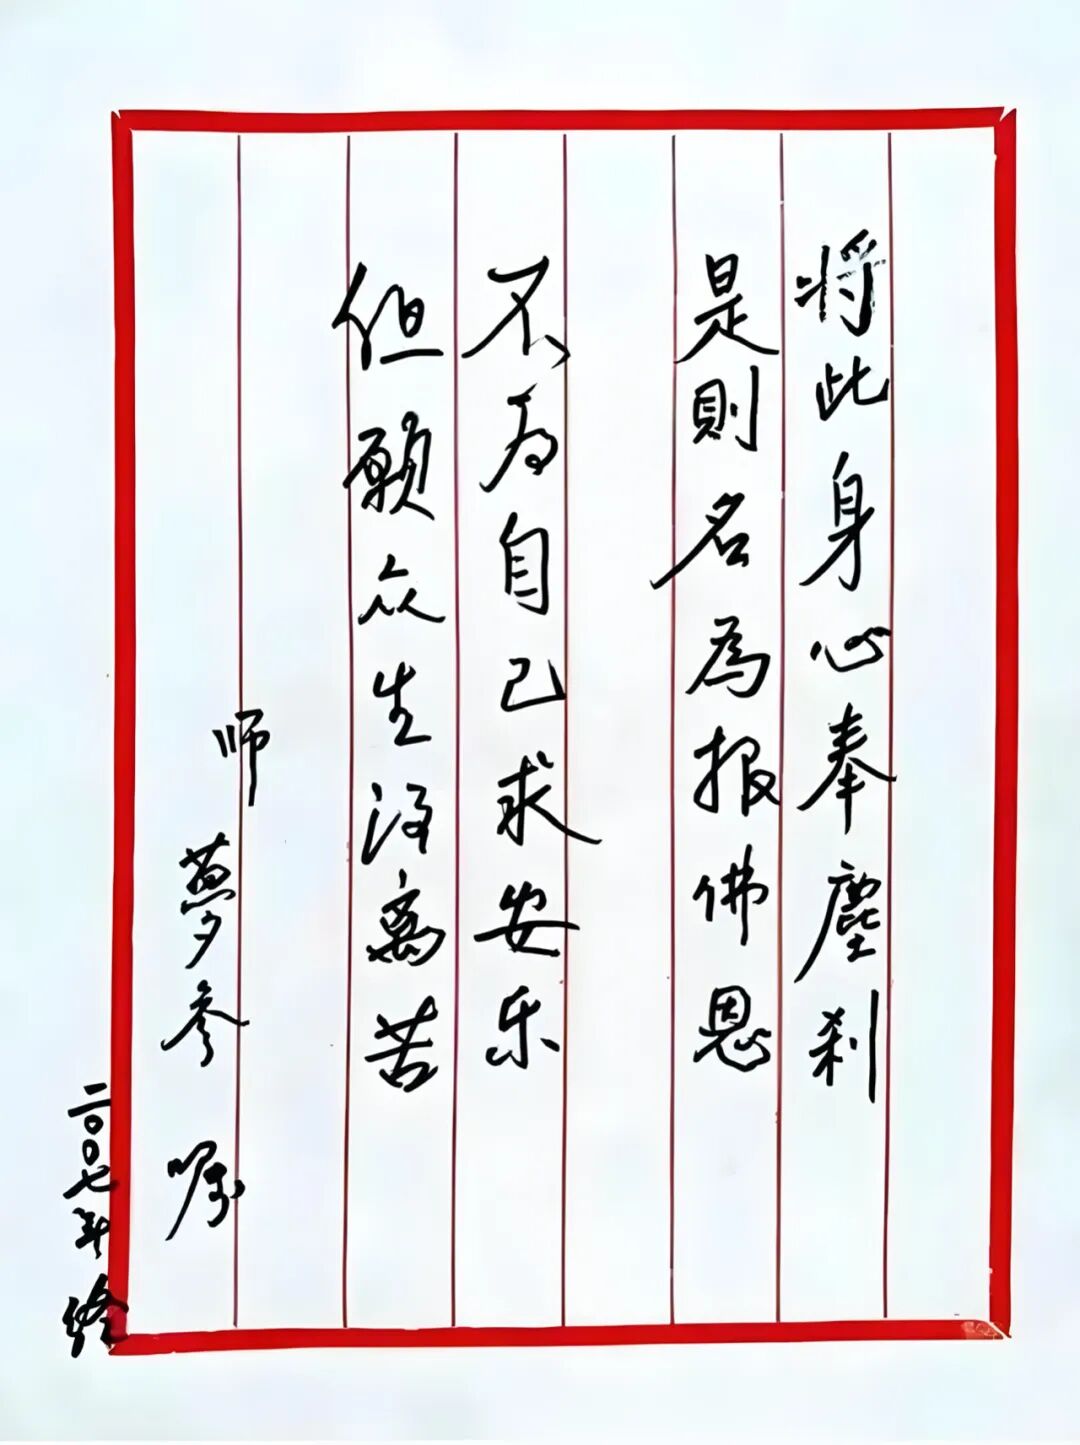 将此身心奉塵刹
是則名為报佛恩
不为自己求安乐
但願众生得离苦
师
夢参 嘱
二〇〇七年